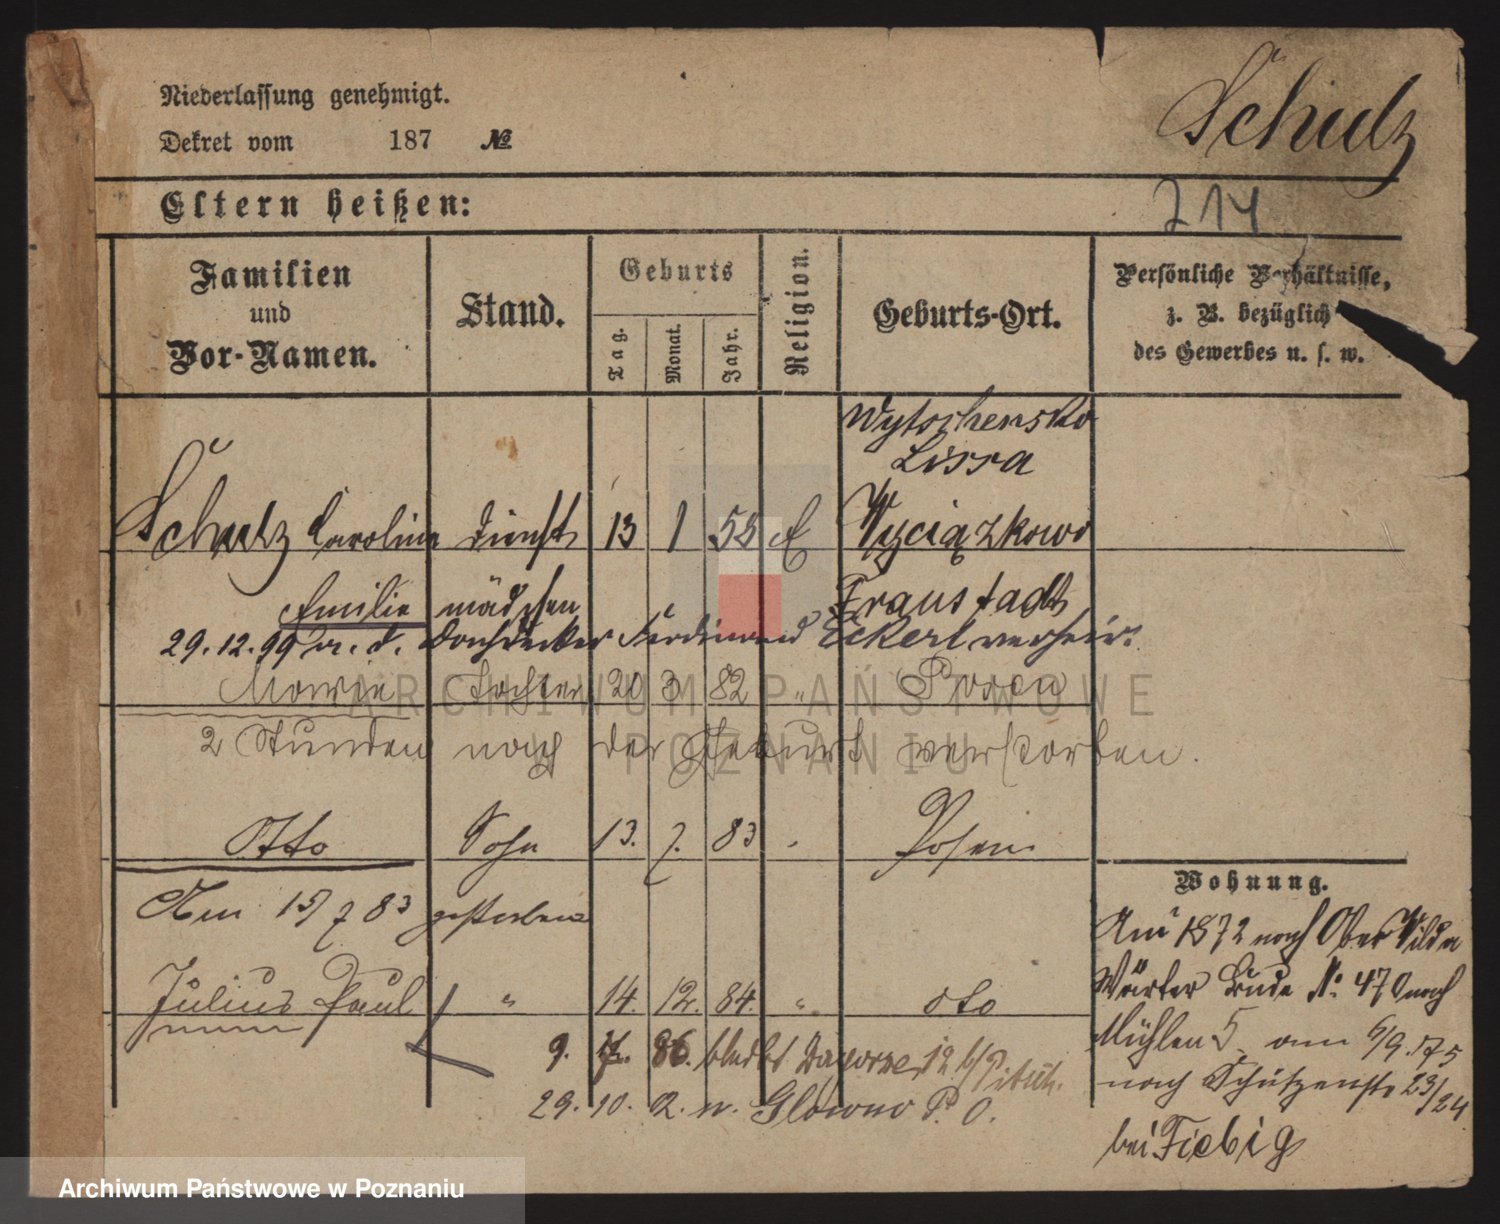 Niederlassung genehmigt.
Schulz
Dekret vom 187 №
Eltern heißen:
214
Familien
und
Vor-Namen.
Stand.
Geburts
Tag.
Monat.
Jahr.
Religion.
Geburts-Ort.
Persönliche Verhältnisse,
z. B. bezüglich
des Gewerbes u. s. w.
Lissa
Schulz Caroline Dienst 13 1 55
Emilie mädchen Fraustadt
29.12.99 m. d. Dachdecker Ferdinand Eckert verheir.
Marie Tochter 20 3 82 " Posen
2 Stunden nach der Geburt verstorben.
Otto Sohn 13. 7. 83 Posen
Am 15/7 83 gestorben
Julius Paul " 14. 12. 84. " dto
9. 86.
29. 10. n. Glowno P. O.
Wohnung.
Am 1872 nach Ober Wilda
Wärter Bude № 470 nach
Mühlen 5 am 6/9. 75
nach Schützenstr 23/24
bei Fiebig
ARCHIWUM PAŃSTWOWE
W POZNANIU
Archiwum Państwowe w Poznaniu